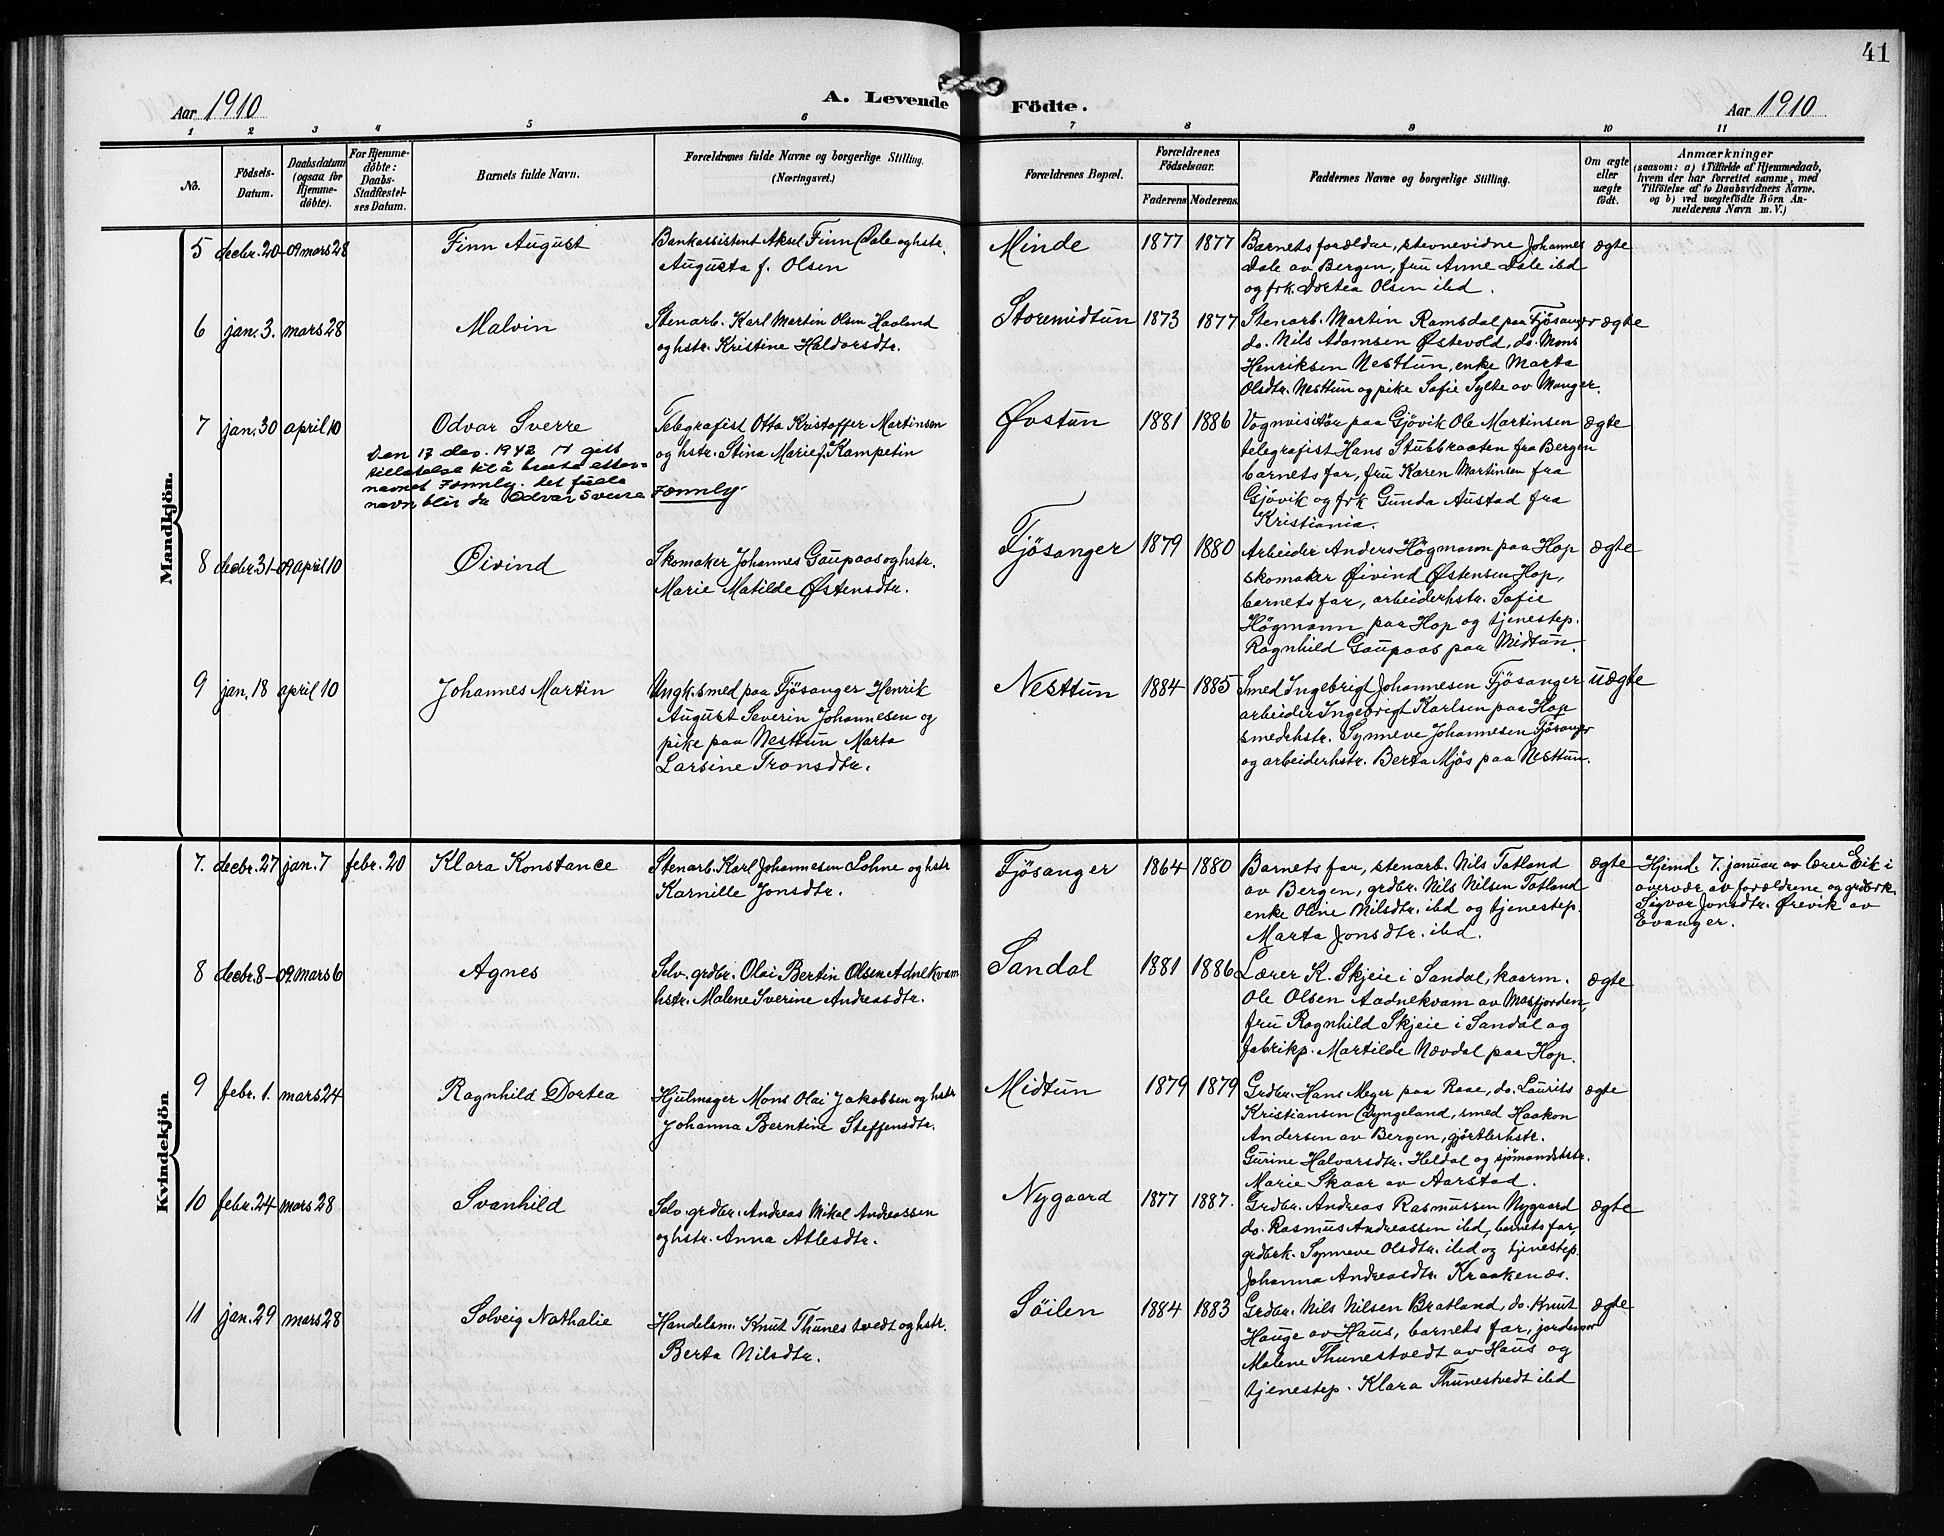 41
Aar 1910
A. Levende Födte.
Aar 1910
1 2 3 4 5 6 7 8 9 10 11
No.
Födsels-
Datum.
Daabsdatum
(ogsaa for
Hjemme-
döbte).
For Hjemme-
döbte:
Daabs-
Stadfæstel-
ses Datum.
Barnets fulde Navn.
Forældrenes fulde Navne og borgerlige Stilling.
(Næringsvei.)
Forældrenes Bopæl.
Forældrenes
Födselsaar.
Faderens.
Moderens.
Faddernes Navne og borgerlige Stilling.
Om ægte
eller
uægte
födt.
Anmærkninger
(saasom: a) i Tilfælde af Hjemmedaab,
hvem der har forrettet samme, med
Tilföielse af to Daabsvidners Navne.
og b) ved uægtefödte Börn An-
melderens Navn m. V.)
Mandkjön.
5 decbr. 20-09 mars 28
Finn August
Bankassistent Aksel Finn Dale og hstr.
Augusta f. Olsen
Minde
1877 1877
Barnets forældre, stevnevidne Johannes
Dale av Bergen, fru Anne Dale ibd
og frk. Dortea Olsen ibd.
ægte
6 jan. 3. mars 28
Malvin
Stenarb. Karl Martin Olsen Haaland
og hstr. Kristine Haldorsdtr.
Storemidtun
1873 1877
Stenarb. Martin Ramsdal paa Fjösanger
do. Nils Adamsen Østevold, do. Mons
Henriksen Nesttun, enke Marta
Olsdtr. Nesttun og pike Sofie Sylte av Manger.
ægte
7 jan. 30 april 10
Odvar Sverre
Den 17 des. 1942 gitt
tillatelse til å bruke etter-
navnet Fonnly. Det fulle
navn blir da Odvar Sverre Fonnly.
Telegrafist Otto Kristoffer Martinsen
og hstr. Stina Marie f. Kampetin
Øvstun
1881 1886
Vognvisitør paa Gjövik Ole Martinsen
telegrafist Hans Stubbraaten fra Bergen
barnets far, fru Karen Martinsen fra
Gjövik og frk Gunda Austad fra
Kristiania.
ægte
8 decbr. 31-09 april 10
Øivind
Skomaker Johannes Gaupaas og hstr.
Marie Matilde Østensdtr.
Fjösanger
1879 1880
Arbeider Anders Högmann paa Hop
skomaker Øivind Østensen Hop,
barnets far, arbeiderhstr. Sofie
Högmann paa Hop og tjenestep.
Ragnhild Gaupaas paa Midtun.
ægte
9 jan. 18 april 10
Johannes Martin
Ungk. smed paa Fjösanger Henrik
August Severin Johannesen og
pike paa Nesttun Marta
Larsine Tronsdtr.
Nesttun
1884 1885
Smed Ingebrigt Johannesen Fjösanger
arbeider Ingebrigt Karlsen paa Hop
smedehstr. Synneve Johannesen Fjösanger
og arbeiderhstr. Berta Mjös paa Nesttun.
uægte
Kvindekjön
7. decbr. 27 jan. 7 febr. 20
Klara Konstance
Stenarb. Karl Johannesen Lohne og hstr
Karnille Jonsdtr.
Fjösanger
1864 1880
Barnets far, stenarb. Nils Totland
av Bergen, grdbr. Nils Nilsen Totland
enke Oline Nilsdtr. ibd og tjenestep.
Marta Jonsdtr. ibd.
ægte
Hjemd. 7. januar av lærer Eik i
overvær av forældrene og grdbrk.
Sigvor Jonsdtr. Ørevik av
Evanger.
8 decbr. 8-09 mars 6
Agnes
Selv. grdbr. Olai Bertin Olsen Adnekvam
hstr. Malene Sverine Andreasdtr.
Sandal
1881 1886
Lærer K. Skjeie i Sandal, kaarm.
Ole Olsen Aadnekvam av Masfjorden,
fru Ragnhild Skjeie i Sandal og
fabrikp. Martilde Nævdal paa Hop.
ægte
9 febr. 1. mars 24
Ragnhild Dortea
Hjulmager Mons Olai Jakobsen og hstr
Johanna Berntine Steffensdtr.
Midtun
1879 1879
Grdbr. Hans Meyer paa Raae, do. Laurits
Kristiansen Dyngeland, smed Haakon
Andersen av Bergen, gjørtlerhstr.
Gurine Halvarsdtr. Heldal og sjömandshstr.
Marie Skaar av Aarstad.
ægte
10 febr. 24 mars 28
Svanhild
Selv. grdbr. Andreas Mikal Andreassen
og hstr. Anna Atlesdtr.
Nygaard
1877 1887.
Grdbr. Andreas Rasmussen Nygaard
do. Rasmus Andreassen ibd, barnets far,
grdbrk. Synneve Olsdtr. ibd og tjenestep.
Johanna Andreasdtr. Kraakenæs.
ægte
11 jan. 29 mars 28
Solveig Nathalie
Handelsm. Knut Thunestvedt og hstr.
Berta Nilsdtr.
Söilen
1884 1883
Grdbr. Nils Nilsen Bratland, do. Knut
Hauge av Haus, barnets far, jordemor
Malene Thunestvedt av Haus og
tjenestep. Klara Thunestvedt ibd
ægte